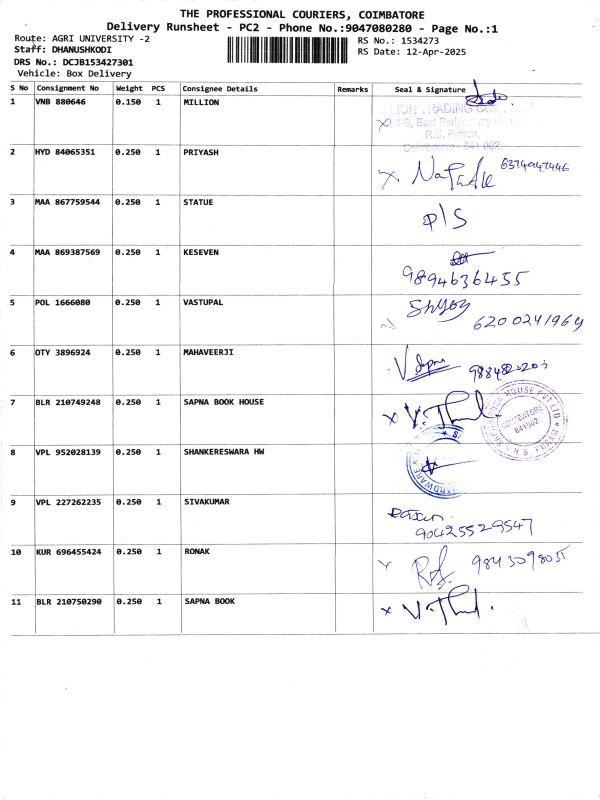 THE PROFESSIONAL COURIERS, COIMBATORE
Delivery Runsheet - PC2 - Phone No.:9047080280 - Page No.:1
Route: AGRI UNIVERSITY -2
RS No.: 1534273
Staff: DHANUSHKODI
RS Date: 12-Apr-2025
DRS No.: DCJB153427301
Vehicle: Box Delivery
S No Consignment No Weight PCS Consignee Details Remarks Seal & Signature
1 VNB 880646 0.150 1 MILLION
TRADING
R.S. Puram,
Coimbatore - 641 002
2 HYD 84065351 0.250 1 PRIYASH
3 MAA 867759544 0.250 1 STATUE
P/S
4 MAA 869387569 0.250 1 KESEVEN
9894636455
5 POL 1666080 0.250 1 VASTUPAL
6200241964
6 OTY 3896924 0.250 1 MAHAVEERJI
7 BLR 210749248 0.250 1 SAPNA BOOK HOUSE
SAPNA BOOK HOUSE PVT LTD
COIMBATORE
641002
R.S. PURAM
8 VPL 952028139 0.250 1 SHANKERESWARA HW
HARDWARE
9 VPL 227262235 0.250 1 SIVAKUMAR
10 KUR 696455424 0.250 1 RONAK
9843098055
11 BLR 210750290 0.250 1 SAPNA BOOK